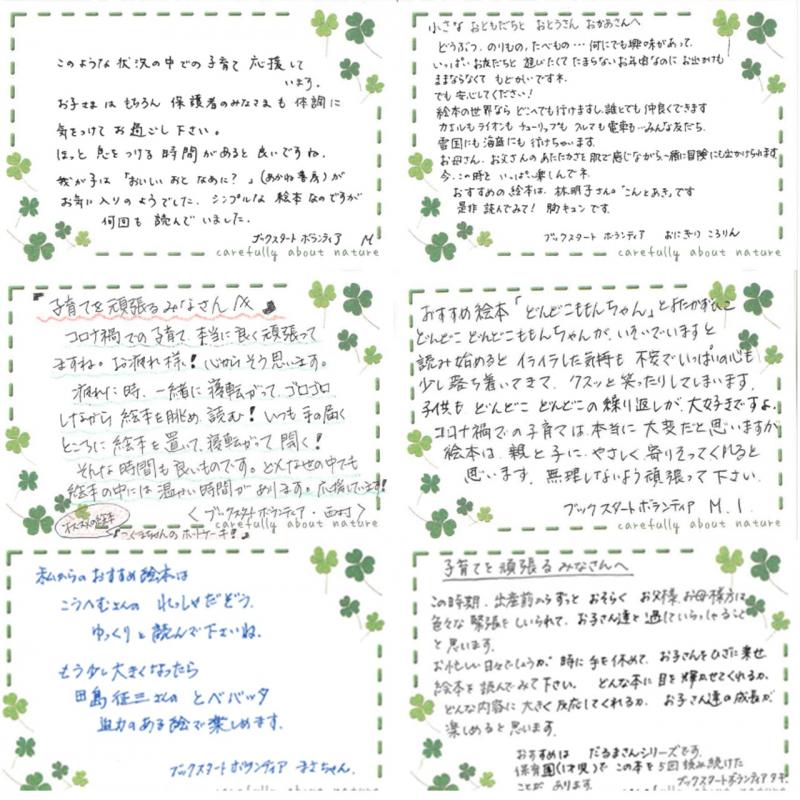 このような状況の中での子育て 応援して
います。
お子さまはもちろん 保護者のみなさまも 体調に
気をつけて お過ごし下さい。
ほっと 息をつける 時間があると良いですね。
我が子は「おいしい おと なあに？」(あかね書房)が
お気に入りのようでした。シンプルな 絵本なのですが
何回も 読んでいました。
ブックスタート ボランティア M
carefully about nature
小さな おともだちと おとうさん おかあさんへ
どうぶつ、のりもの、たべもの…何にでも興味があって、
いっぱいお友だちと 遊びたくて たまらないお年頃なのに お出かけも
ままならなくて もどかしいですネ。
でも 安心してください！
絵本の世界なら どこへでも行けますし、誰とでも 仲良くできます
カエルも ライオンも チューリップも クルマも 電車も…みんな友だち。
雪国にも 海底にも 行けちゃいます。
お母さん、お父さんの あたたかさを 肌で感じながら、一緒に冒険にも出かけられます
今、この時を いっぱい楽しんでネ。
おすすめの絵本は、林明子さんの「こんとあき」です
是非 読んでみて！ 胸キュンです。
ブックスタート ボランティア おにぎり ころりん
carefully about nature
子育てを頑張るみなさんへ
コロナ禍での子育て、本当に良く頑張って
ますね。お疲れ様！心からそう思います。
疲れた時、一緒に寝転がって、ゴロゴロ
しながら 絵本を眺め、読む！いつも手の届く
ところに 絵本を置いて、寝転がって 開く！
そんな時間も良いものです。どんなせの中でも
絵本の中には 温かい時間が あります。応援しています！
＜ブックスタートボランティア・西村＞
オススメの絵本
『しろくまちゃんのホットケーキ！』
carefully about nature
おすすめ絵本「どんどこももんちゃん」とよたかずひこ
どんどこ どんどこももんちゃんが、いそいでいますと
読み始めると イライラした気持も 不安でいっぱいの心も
少し落ち着いてきて、クスッと笑ったりしてしまいます。
子供も どんどこ どんどこの繰り返しが、大好きですよ。
コロナ禍での子育ては 本当に 大変だと思いますが
絵本は、親と子に やさしく 寄りそってくれると
思います。無理しないよう頑張って下さい。
ブックスタートボランティア M.I.
carefully about nature
私からのおすすめ絵本は
こうへむさんの れっしゃだぞう。
ゆっくりと 読んで下さいね。
もう少し大きくなったら
田島征三さんの とべバッタ
迫力のある絵で楽しめます。
ブックスタートボランティア まさちゃん。
carefully about nature
子育てを頑張るみなさんへ
この時期、出産前からずっと おそらく お父様、お母様方は
色々な緊張をしいられて、お子さん達と過していらっしゃること
と思います。
お忙しい日々でしょうが、時に手を休めて、お子さんをひざに乗せ
絵本を読んでみて下さい。どんな本に目を輝かせてくれるか、
どんな内容に大きく反応してくれるか、お子さん達の成長が
楽しめると思います。
おすすめは だるまさんシリーズです。
保育園(1才児)で この本を5回読み続けた
ことが あります。
ブックスタートボランティア タテ
carefully about nature